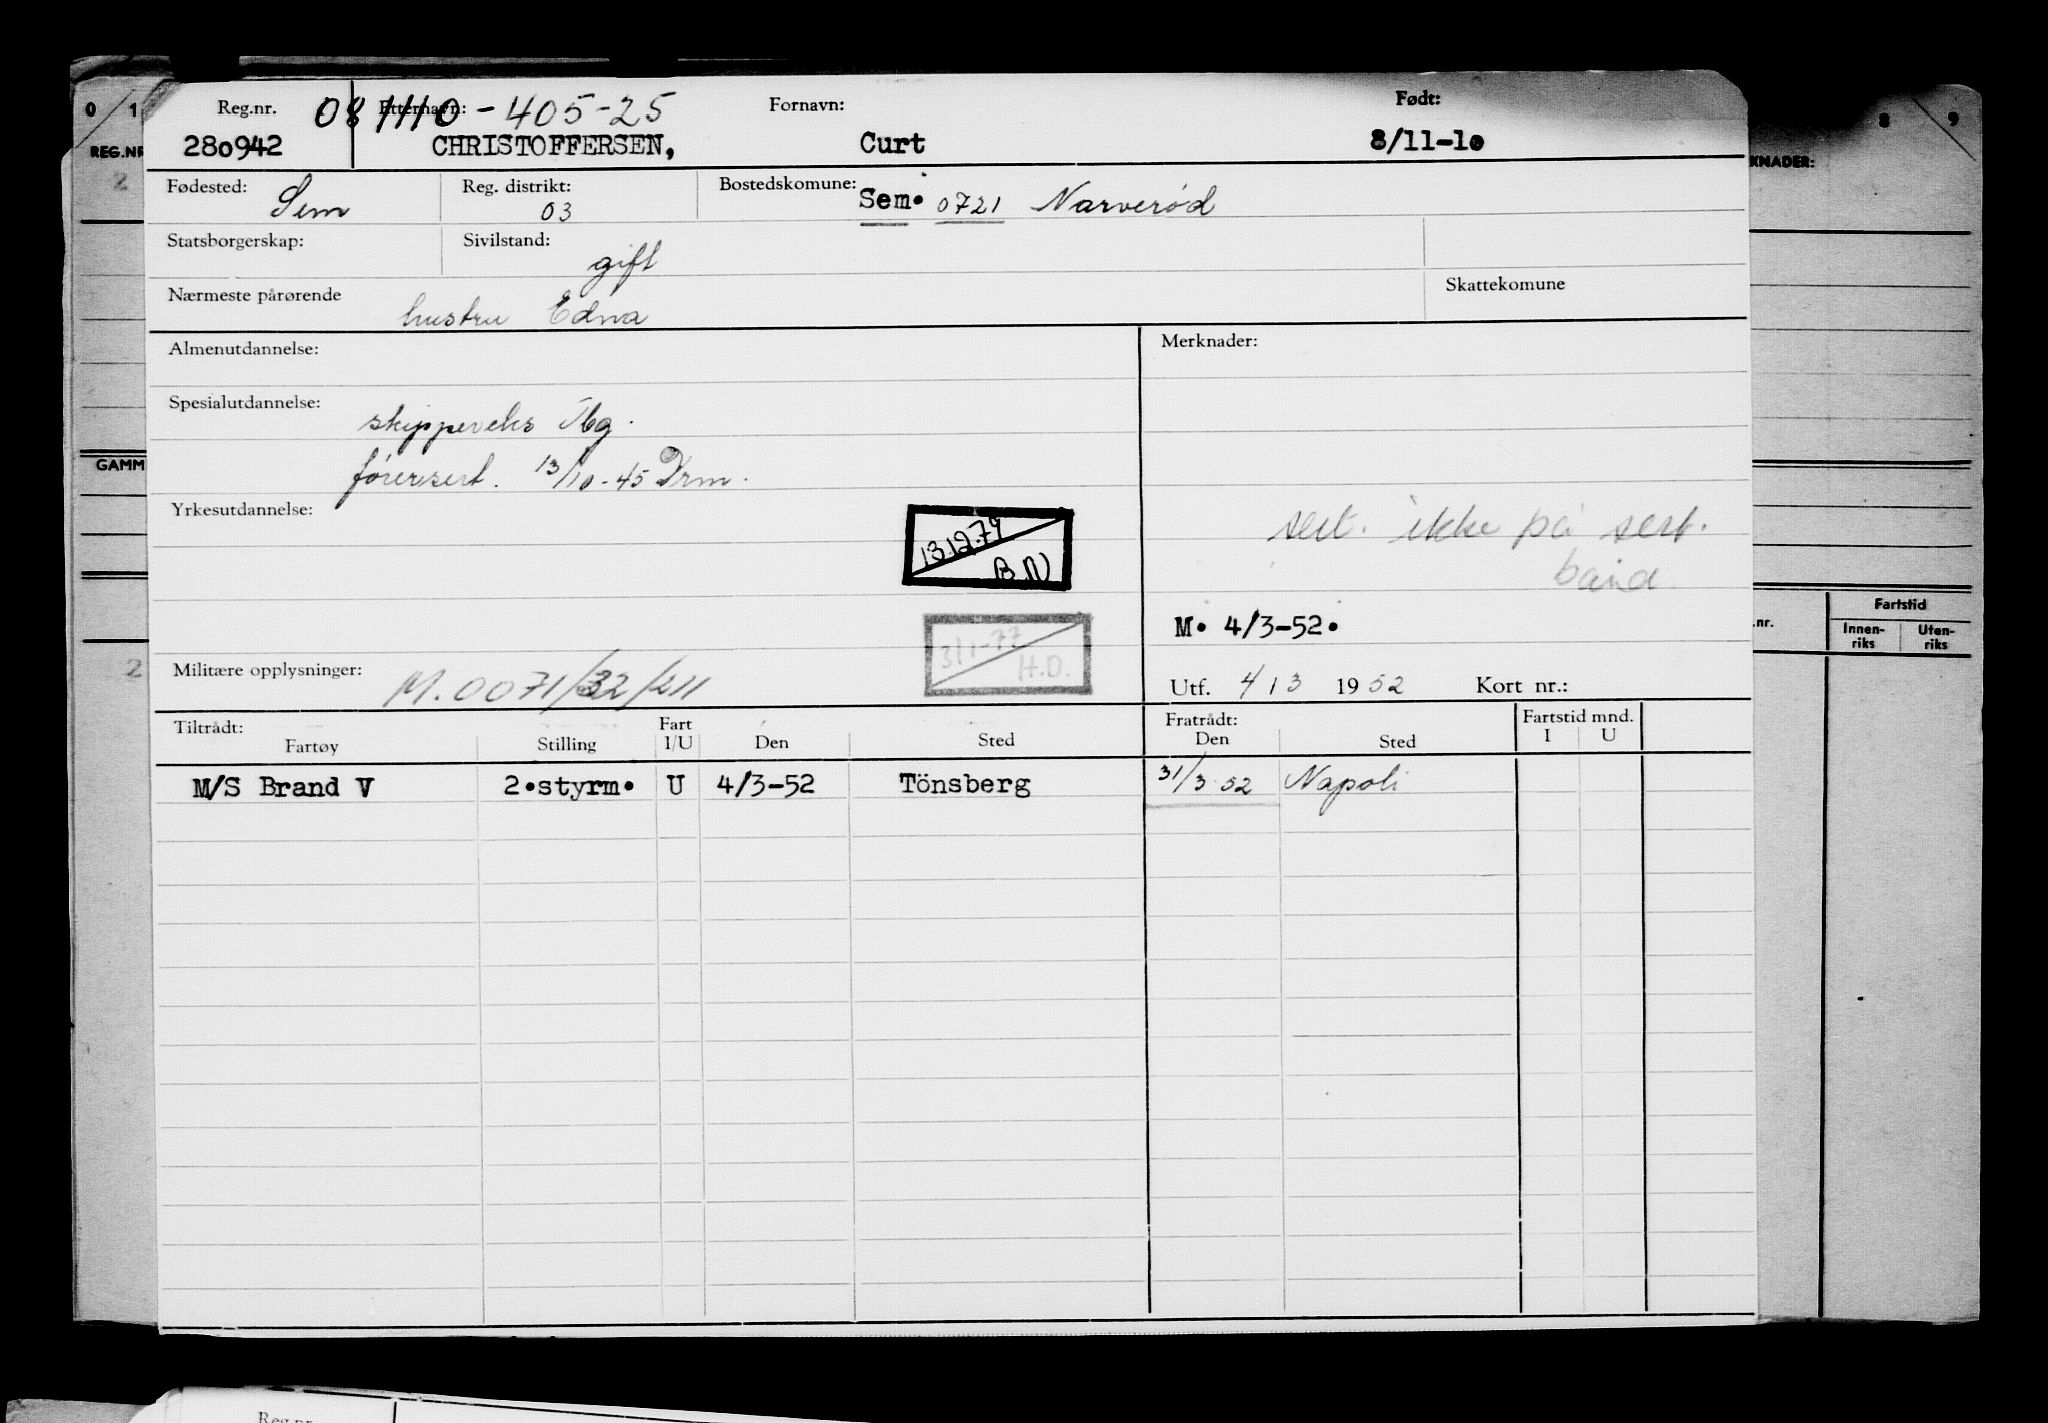 0 1
8 9
Reg.nr. Etternavn: Fornavn: Født:
081110-405-25
280942 CHRISTOFFERSEN, Curt 8/11-10
REG.NR
KNADER:
2
Fødested: Sem Reg. distrikt: 03 Bostedskomune: Sem. 0721 Narverød
Statsborgerskap: Sivilstand: gift
Nærmeste pårørende hustru Edna Skattekomune
Almenutdannelse: Merknader:
Spesialutdannelse: skippereks Tbg.
førersert. 13/10-45 Drm.
GAMM
Yrkesutdannelse:
13.12.79
B.N
sert. ikke på sert.
bånd.
M. 4/3-52.
31/1-77
H.D.
Militære opplysninger: M.0071/32/211
Utf. 4/3 1952 Kort nr.:
2
.nr. Fartstid
Innen-
riks
Uten-
riks
Tiltrådt: Fart Fratrådt: Fartstid mnd.
Fartøy Stilling I/U Den Sted Den Sted I U
M/S Brand V 2.styrm. U 4/3-52 Tönsberg 31/3-52 Napoli
Reg.nr.